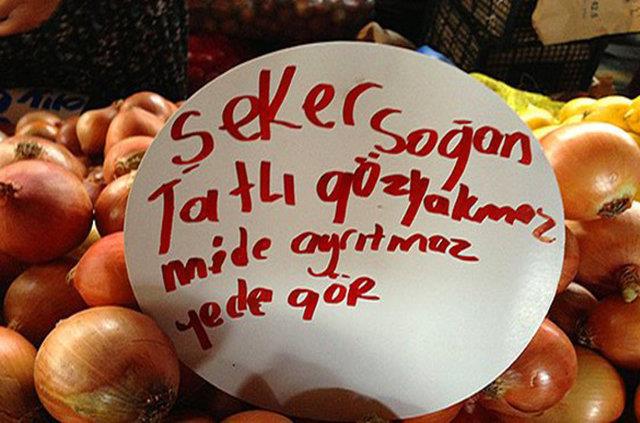 Şeker Soğan
Tatlı gözyakmaz
mide ayrıtmaz
yede gör